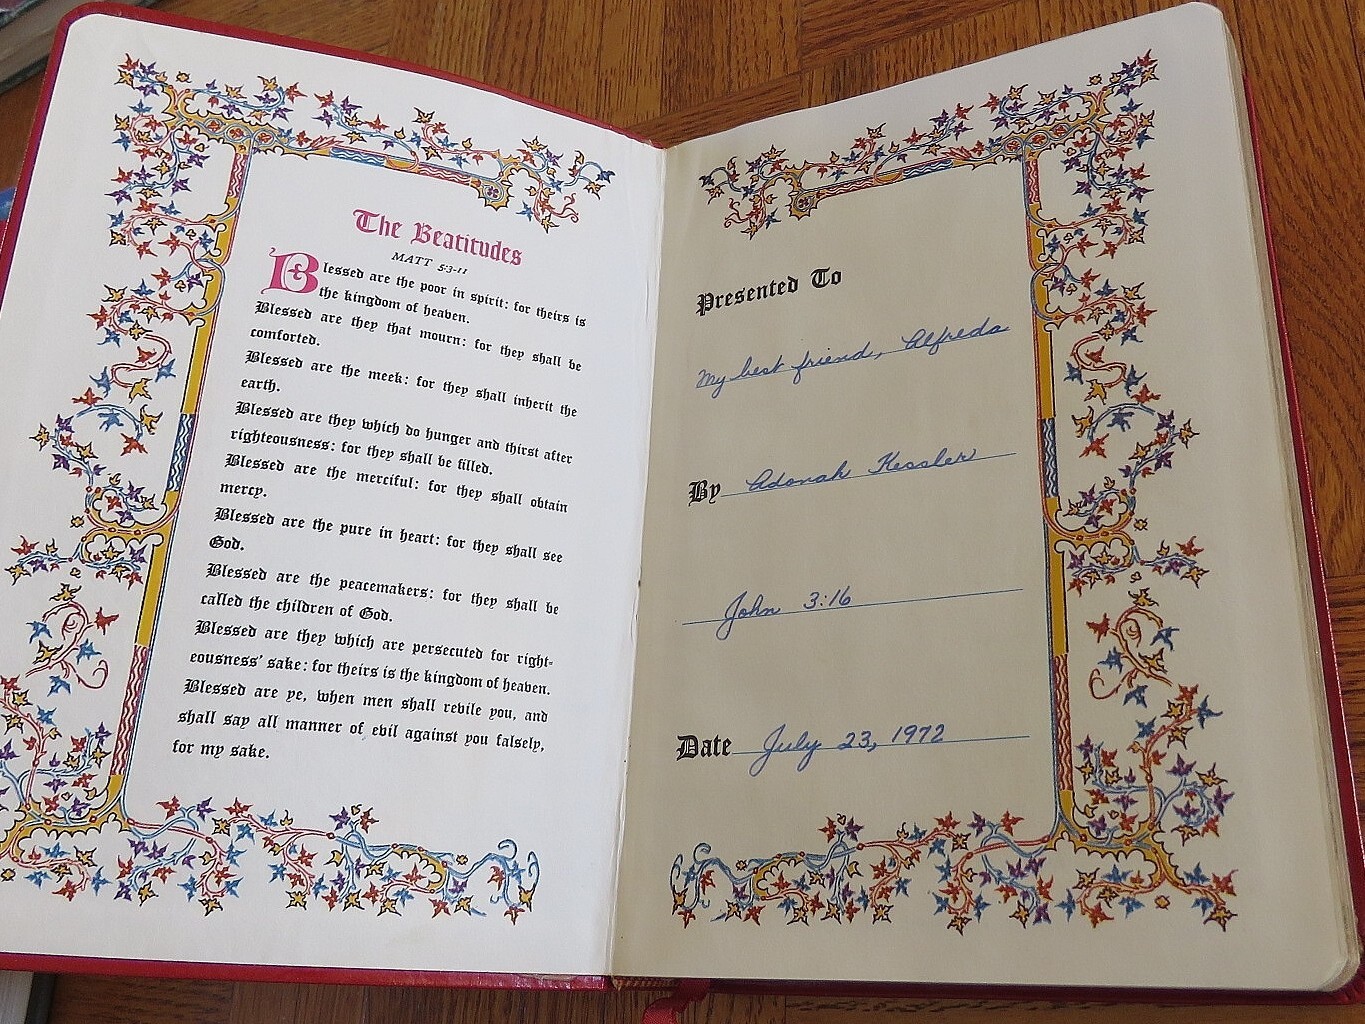 The Beatitudes
MATT 5:3-11
Blessed are the poor in spirit: for theirs is
the kingdom of heaven.
Blessed are they that mourn: for they shall be
comforted.
Blessed are the meek: for they shall inherit the
earth.
Blessed are they which do hunger and thirst after
righteousness: for they shall be filled.
Blessed are the merciful: for they shall obtain
mercy.
Blessed are the pure in heart: for they shall see
God.
Blessed are the peacemakers: for they shall be
called the children of God.
Blessed are they which are persecuted for right-
eousness' sake: for theirs is the kingdom of heaven.
Blessed are ye, when men shall revile you, and
shall say all manner of evil against you falsely,
for my sake.
Presented To
My best friend, Alfreda
By Adonah Kessler
John 3:16
Date July 23, 1972